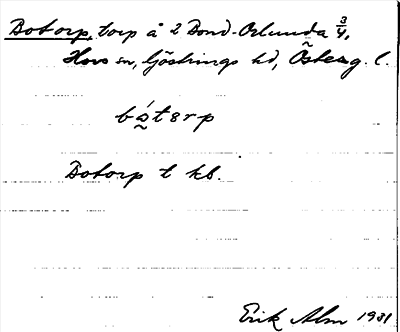 Botorp, torp å 2 Bond-Orlunda 3/4,
Hovs sn, Göstrings hd, Österg. l.
bó̰tərp
Botorp t kb.
Erik Alm 1931